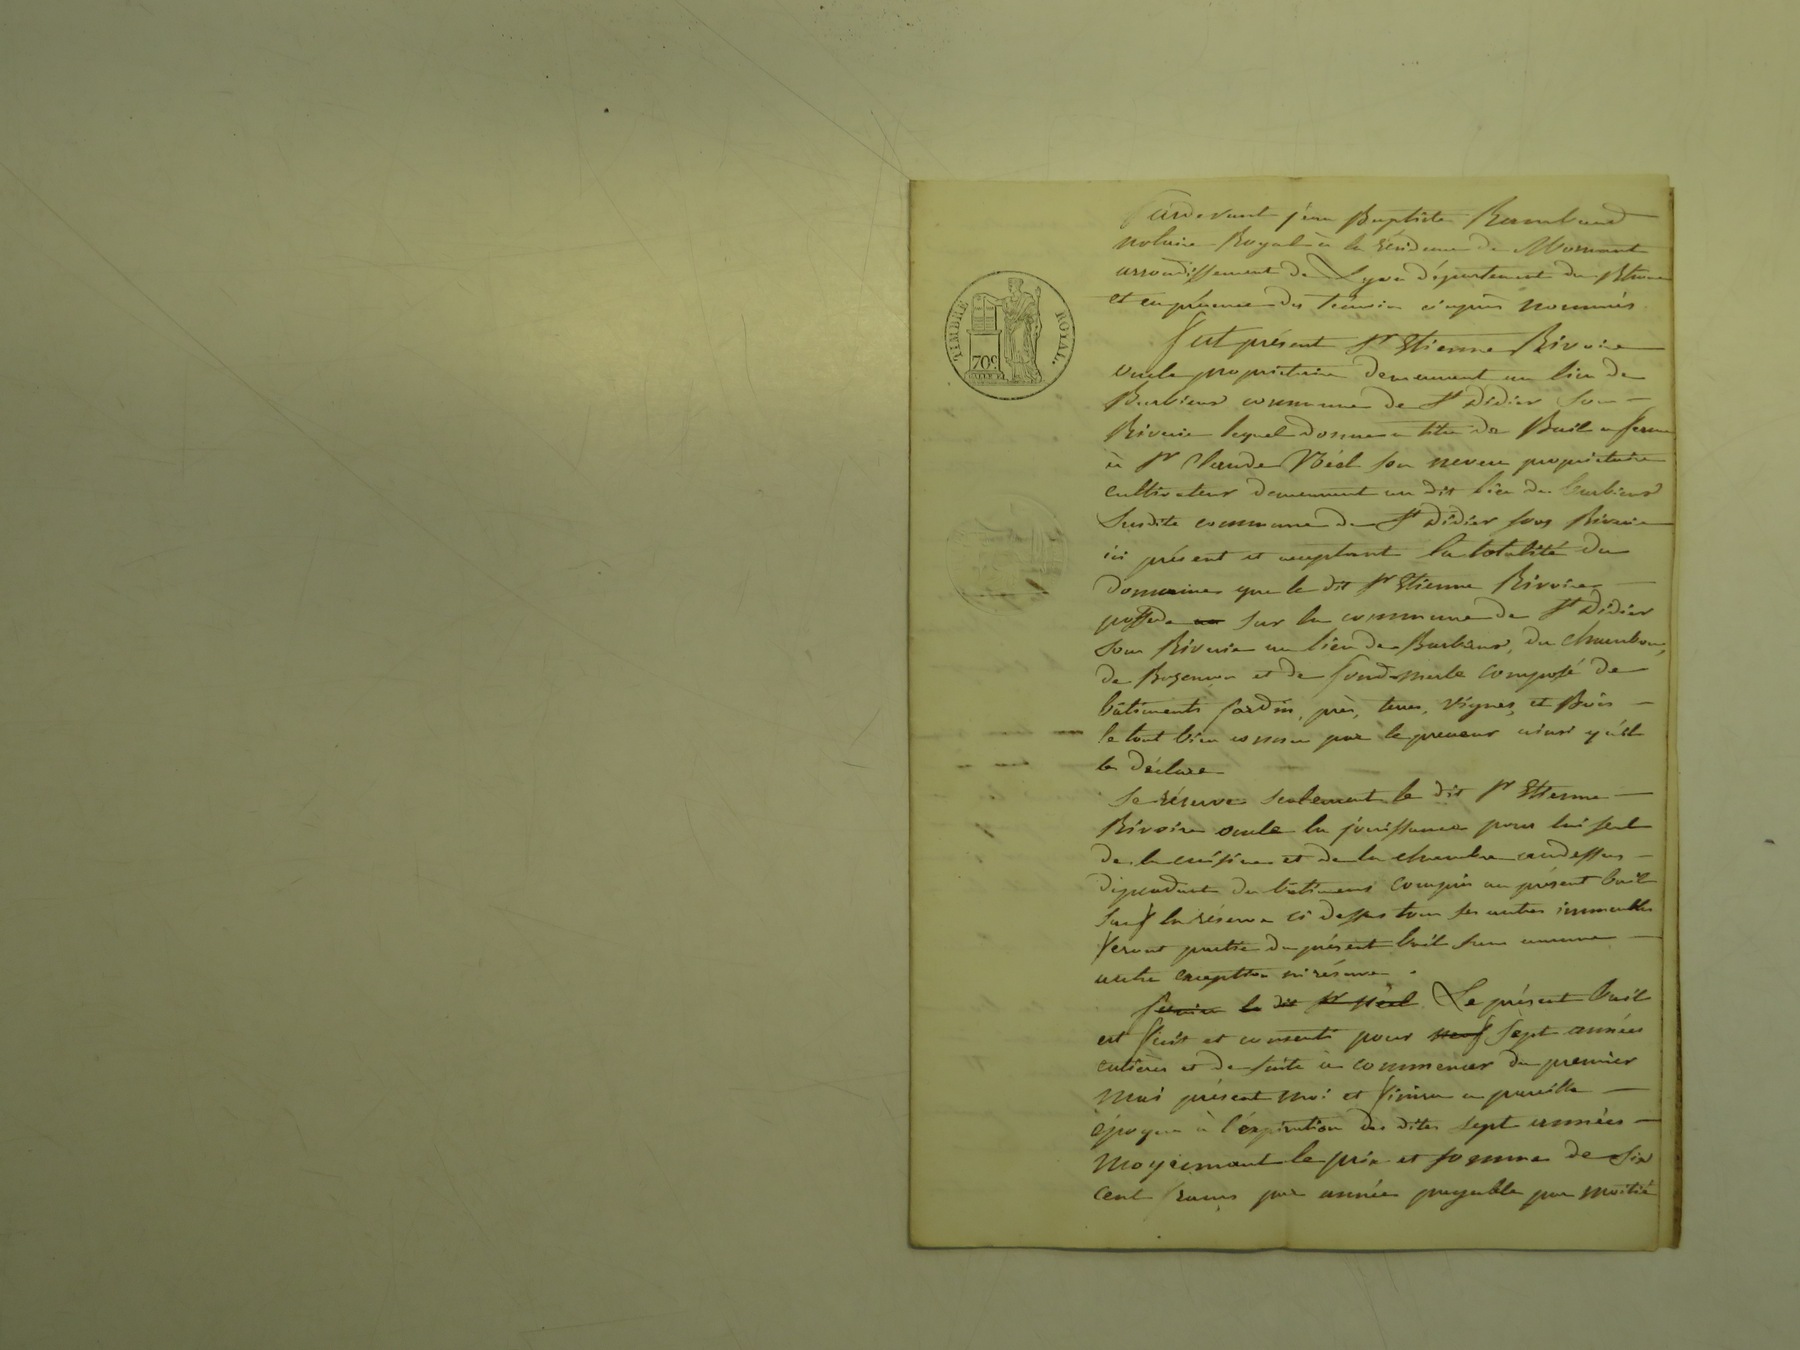 TIMBRE ROYAL.
70c
Pardevant jean Baptiste Rambaud
notaire Royal à la résidence de Mornant
arrondissement de Lyon département du Rhone
et en présence des témoins ci après nommés
fut présent Sr Etienne Rivoire
oncle propriétaire demeurant au lieu de
commune de St Didier Sous
Riverie lequel donne a titre de Bail a ferme
à Sr Claude son neveu propriétaire
cultivateur demeurant au dit lieu de
Susdite commune de St Didier sous Riverie
ici présent et acceptant la totalité du
Domaine que le dit Sr Etienne Rivoire
possède sur la commune de St Didier
Sous Riverie au lieu de du
de et de composé de
bâtiments jardin, près, terres, Vignes, et Bois
le tout bien connu par le preneur ainsi qu'il
le déclare
Se réserve seulement le dit Sr Etienne
Rivoire oncle la jouissance pour lui seul
de la cuisine et de la chambre au dessus
dépendant du bâtiment compris au présent bail
sauf la réserve ci dessus tous ses autres immeubles
feront partie du présent bail sans aucune
autre exception ni réserve.
le dit Sr Le présent bail
est fait et consenti pour neuf sept années
entières et de suite à commencer du premier
Mai présent moi et finira a pareille
époque à l'expiration des dites sept années
Moyennant le prix et somme de six
cent francs par année payable par moitié